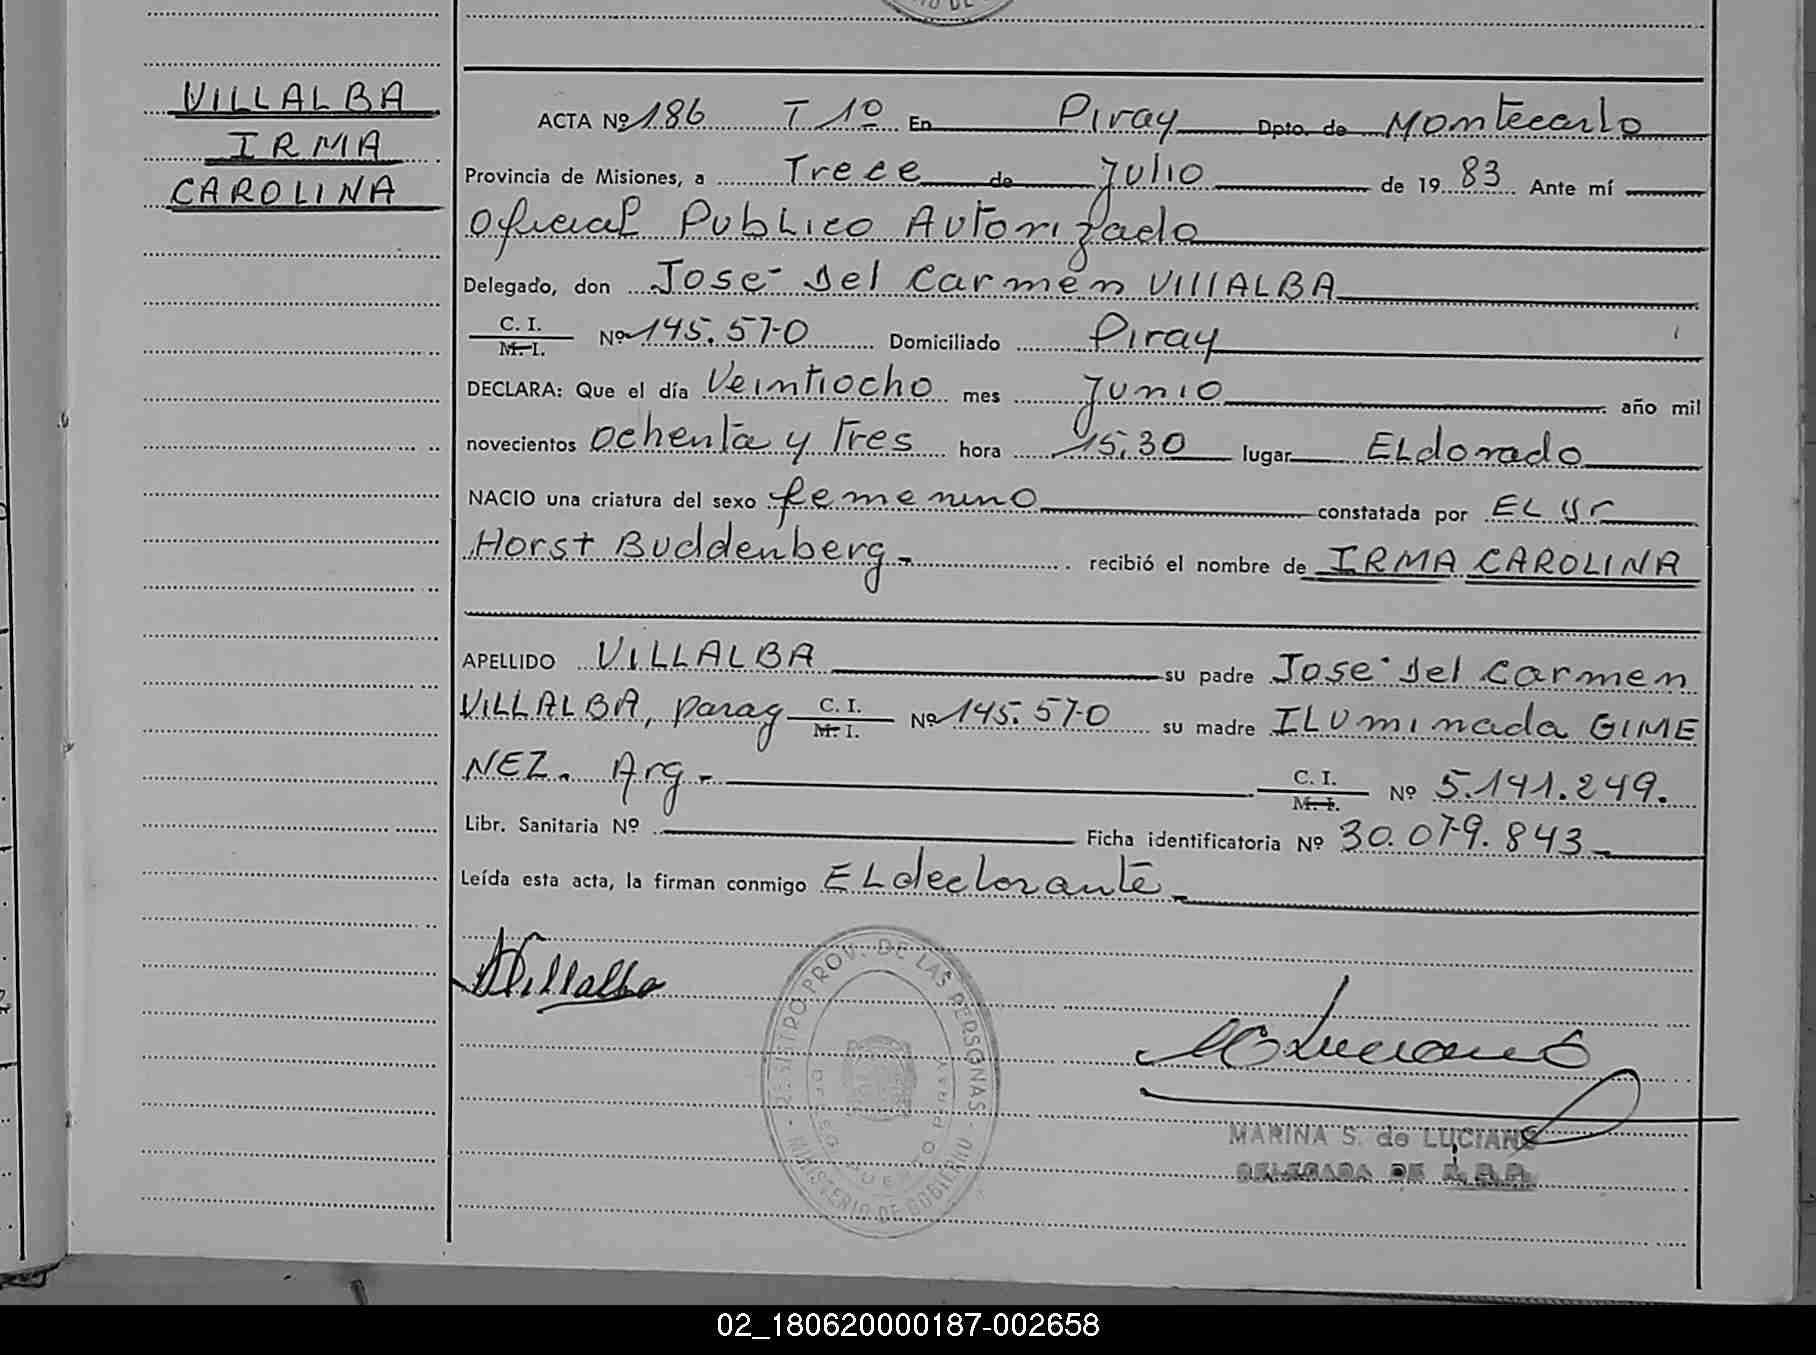 VILLALBA
IRMA
CAROLINA
ACTA Nº 186 T 1º En Piray Dpto. de Montecarlo
Provincia de Misiones, a Trece de Julio de 19 83 Ante mí
Oficial Publico Autorizado
Delegado, don Jose Del Carmen VIllALBA
C. I.
M. I. Nº 145.570 Domiciliado Piray
DECLARA: Que el día Veintiocho mes Junio año mil
novecientos Ochenta y Tres hora 15,30 lugar ELdorado
NACIO una criatura del sexo femenino constatada por EL Dr
Horst Buddenberg.- recibió el nombre de IRMA CAROLINA
APELLIDO VILLALBA su padre Jose Del Carmen
VILLALBA, parag C. I.
M. I. Nº 145.570 su madre ILuminada GIME
NEZ. Arg.- C. I.
M. I. Nº 5.141.249.
Libr. Sanitaria Nº Ficha identificatoria Nº 30.079.843
Leída esta acta, la firman conmigo EL declarante
Villalba
REGISTRO PROV. DE LAS PERSONAS - MINISTERIO DE GOBIERNO
Luciano
MARINA S. de LUCIANO
DELEGADA DE
02_180620000187-002658